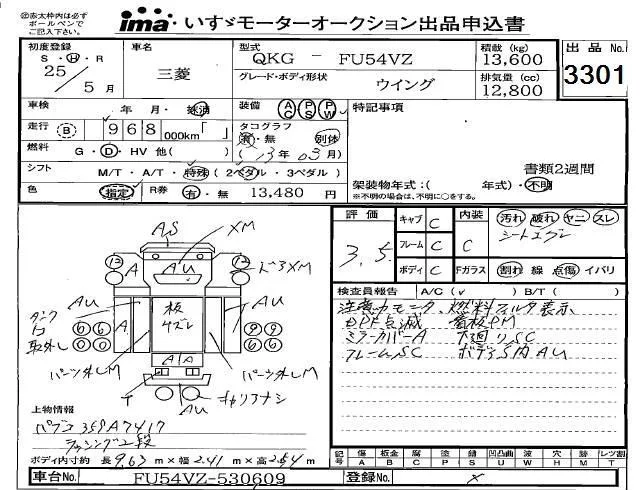 ※赤太枠内は必ずボールペンでご記入下さい。
ima・いすゞモーターオークション出品申込書
初度登録 S・H・R 25/5月
車名 三菱
型式 QKG - FU54VZ
グレード・ボディ形状 ウイング
積載(kg) 13,600
排気量(cc) 12,800
出品No. 3301
車検 年 月・抹消
装備 AC PS PW
走行 B 968 000km「 」
タコグラフ 有・無 別体
('13年 03月)
燃料 G・D・HV 他( )
シフト M/T・A/T・特殊(2ペダル・3ペダル)
色 指定 R券 有・無 13,480 円
特記事項
書類2週間
架装物年式:( 年式)・不明
※不明の場合は、不明に○をする。
評価 3.5
キャブ C
フレーム C
ボディ C
内装 C
Fガラス
汚れ 破れ ヤニ スレ
割れ 線 点傷 イバリ
検査員報告 A/C( ✓ ) B/T( )
注意力モニタ、燃料フィルタ表示
DPF点滅 看板PM
ミラーカバーA 下廻りSC
フレームSC ボデーS内AU
AS
XM
12
A
AU
12
ドアXM
AU
板
AU
タンク
取外し
6 6
0 0
A
9 9
6 6
パーツ外しM
AA
パーツ外しM
AU
キャリアナシ
上物情報
パブコ 359A7417
ラッシング2段
ボディ内寸約 長9.63m×幅2.41m×高2.54m
記号 傷A 板金B 腐C P S 凹凸曲U 波W 穴H 跡M レンズ割T
車台No. FU54VZ-530609
登録No. ×